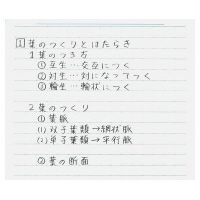 1 葉のつくりとはたらき
1 葉のつき方
① 互生…交互につく
② 対生…対になってつく
③ 輪生…輪状につく
2 葉のつくり
① 葉脈
(1) 双子葉類→網状脈
(2) 単子葉類→平行脈
② 葉の断面